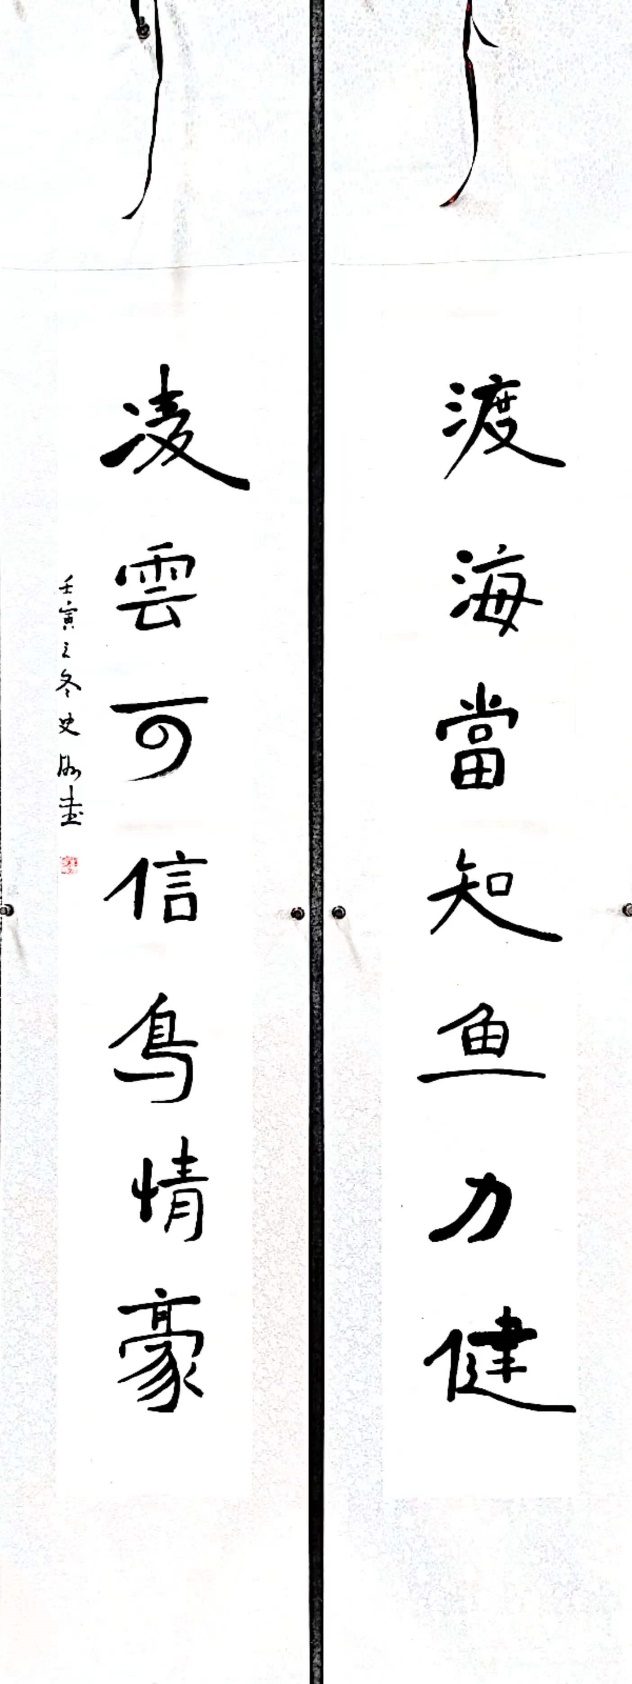 渡海當知鱼力健
凌雲可信鳥情豪
壬寅之冬史書